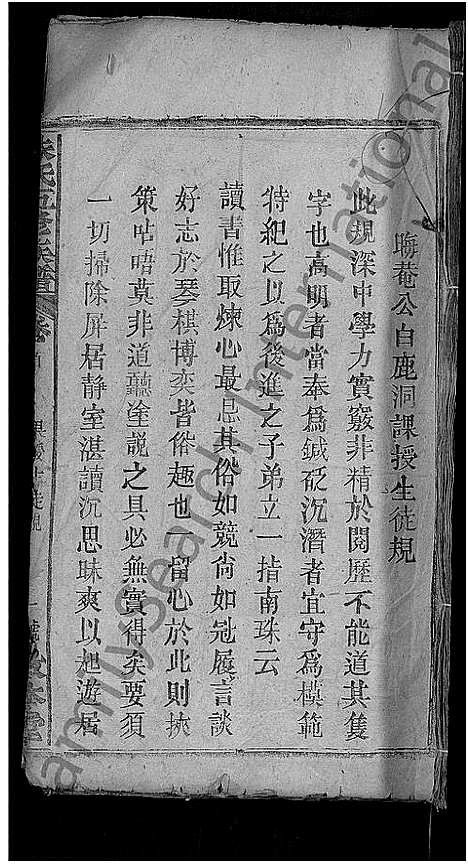 晦菴公白鹿洞課授生徒規
此規深中學力實竅非精於閱歷不能道其隻
字也高明者當奉爲鍼砭沉潛者宜守爲模範
特紀之以爲後進之子弟立一指南珠云
讀書惟取煉心最忌其俗如競尙如冠履言談
好志於琴棋博奕皆俗趣也一留心於此則挾
策呫唔莫非道聽塗說之具必無實得矣要須
一切掃除屏居静室湛讀沉思昧爽以起遊居
氏五修族譜
FamilySearch International